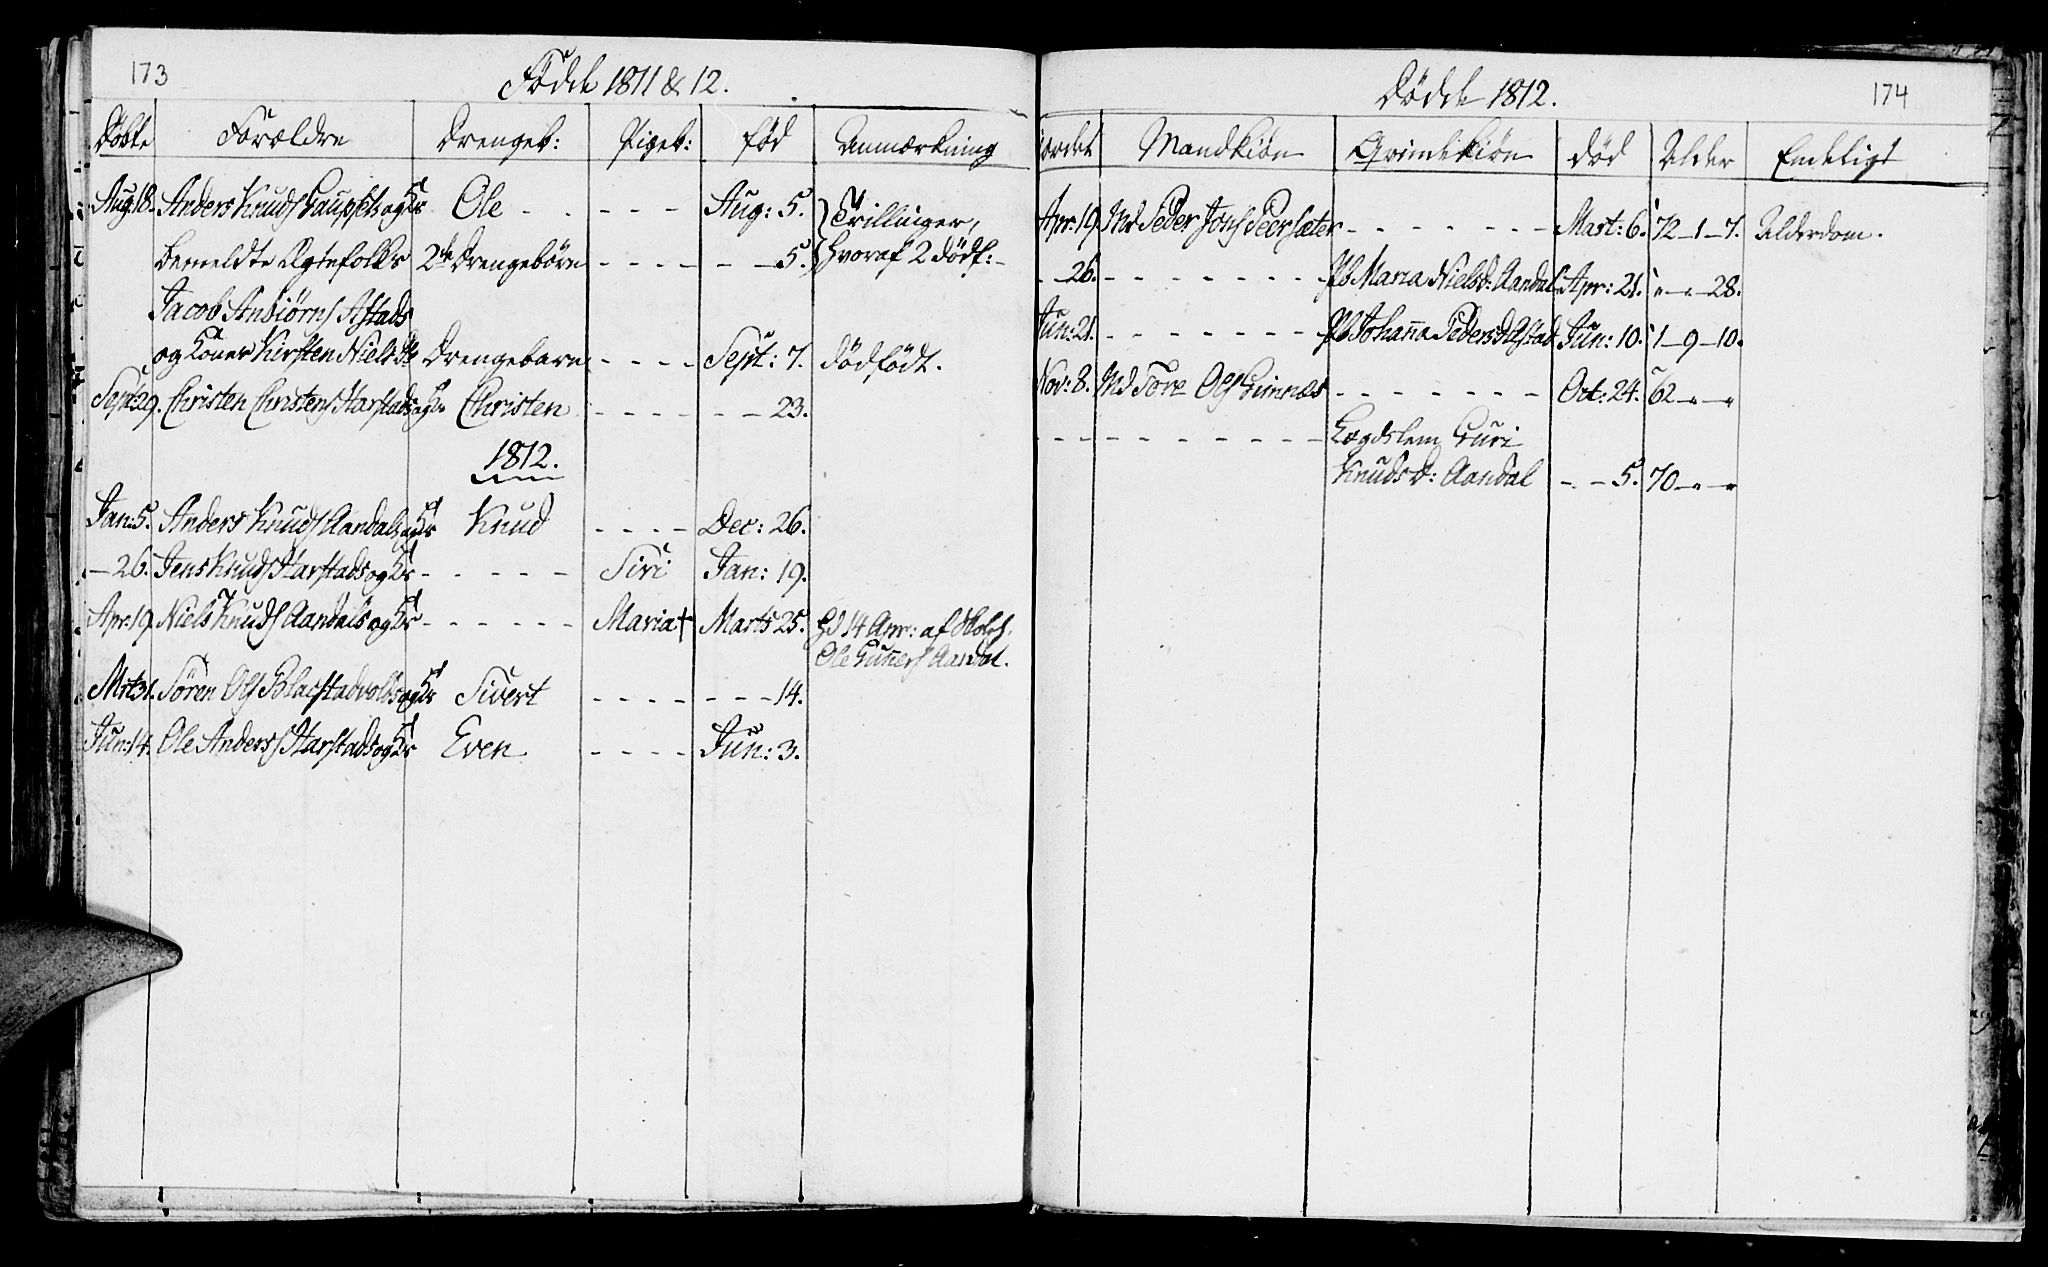 173
Födde 1811 & 12.
Döbte Forældre Drengeb: Pigeb: fød Anmærkning
Aug: 18. Anders Knuds Gaupset og K: Ole - - - - - Aug: 5. Trillinger,
bemeldte Ægtefolks 2de Drengebörn - - - - - - 5. hvoraf 2 dödf: -
Jacob Anbiörns Astads
og Koner Kirsten Nielsdr Drengebarn - - - - Sept: 7. dödfödt.
Sept: 29. Christen Christens Harstads og K: Christen - - - - - - 23.
1812.
Jan: 5. Anders Knuds Aandals og K: Knud - - - - Dec: 26.
- 26. Jens Knuds Harstads og K: - - - - - Siri Jan: 19.
Apr: 19. Niels Knuds Aandals og K: - - - - - - Maria † Marts 25. Hd 14 Apr: af
Ole Aandal.
Mrt: 31. Sören Ols og K: Sivert - - - - - - - 14.
Jun: 14. Ole Anders Harstads og K: Even - - - - Jun: 3.
174
Dödde 1812.
Jordet Mandkiön Qvindekiön död Alder Endeligt
Apr: 19. Md Peder Jons Peersæter - - - - - - - Mart: 6. 72 - 1 - 7. Alderdom.
- - 26. - - - - - - - Pb Maria Nielsd: Aandal Apr: 21. " - " - 28.
Jun: 21. - - - - - - - Pb Johanna Pedersd: Astad Jun: 10. 1 - 9 - 10.
Nov: 8. Md Tore Ols Gimnæs - - - - - - - Oct: 24. 62 - " - "
- - - - - - - - - - Lægdslem Guri
Knudsd: Aandal - - 5. 70 - " - "